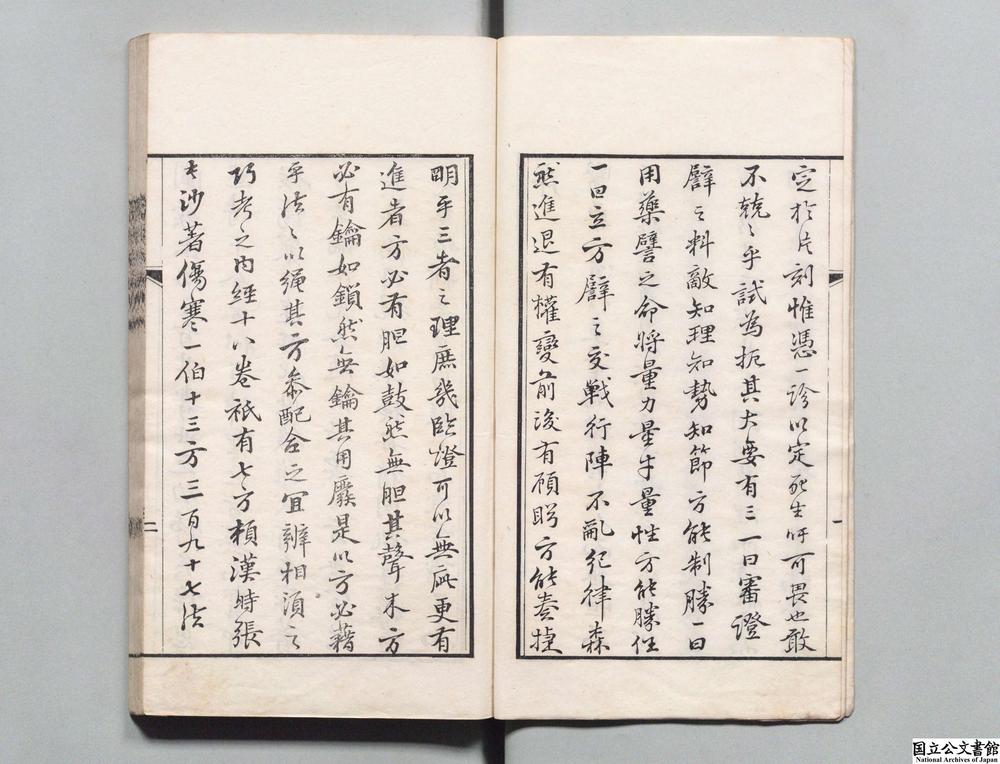 定於片刻惟憑一診以定死生吁可畏也敢
不兢〻乎試為扼其大要有三一曰審證
譬之料敵知理知勢知節方能制勝一曰
用藥譬之命將量力量才量性方能勝任
一曰立方譬之交戰行陣不亂紀律森
然進退有權變前後有顧盼方能奏捷
明乎三者之理庶幾臨證可以無疵更有
進者方必有胆如鼓然無胆其聲木方
必有鑰如鎖然無鑰其用廢是以方必藉
乎法〻以繩其方叅配合之宜辨相須之
巧考之內經十八卷衹有七方頼漢時張
長沙著傷寒一伯十三方三百九十七法
一
二
国立公文書館
National Archives of Japan